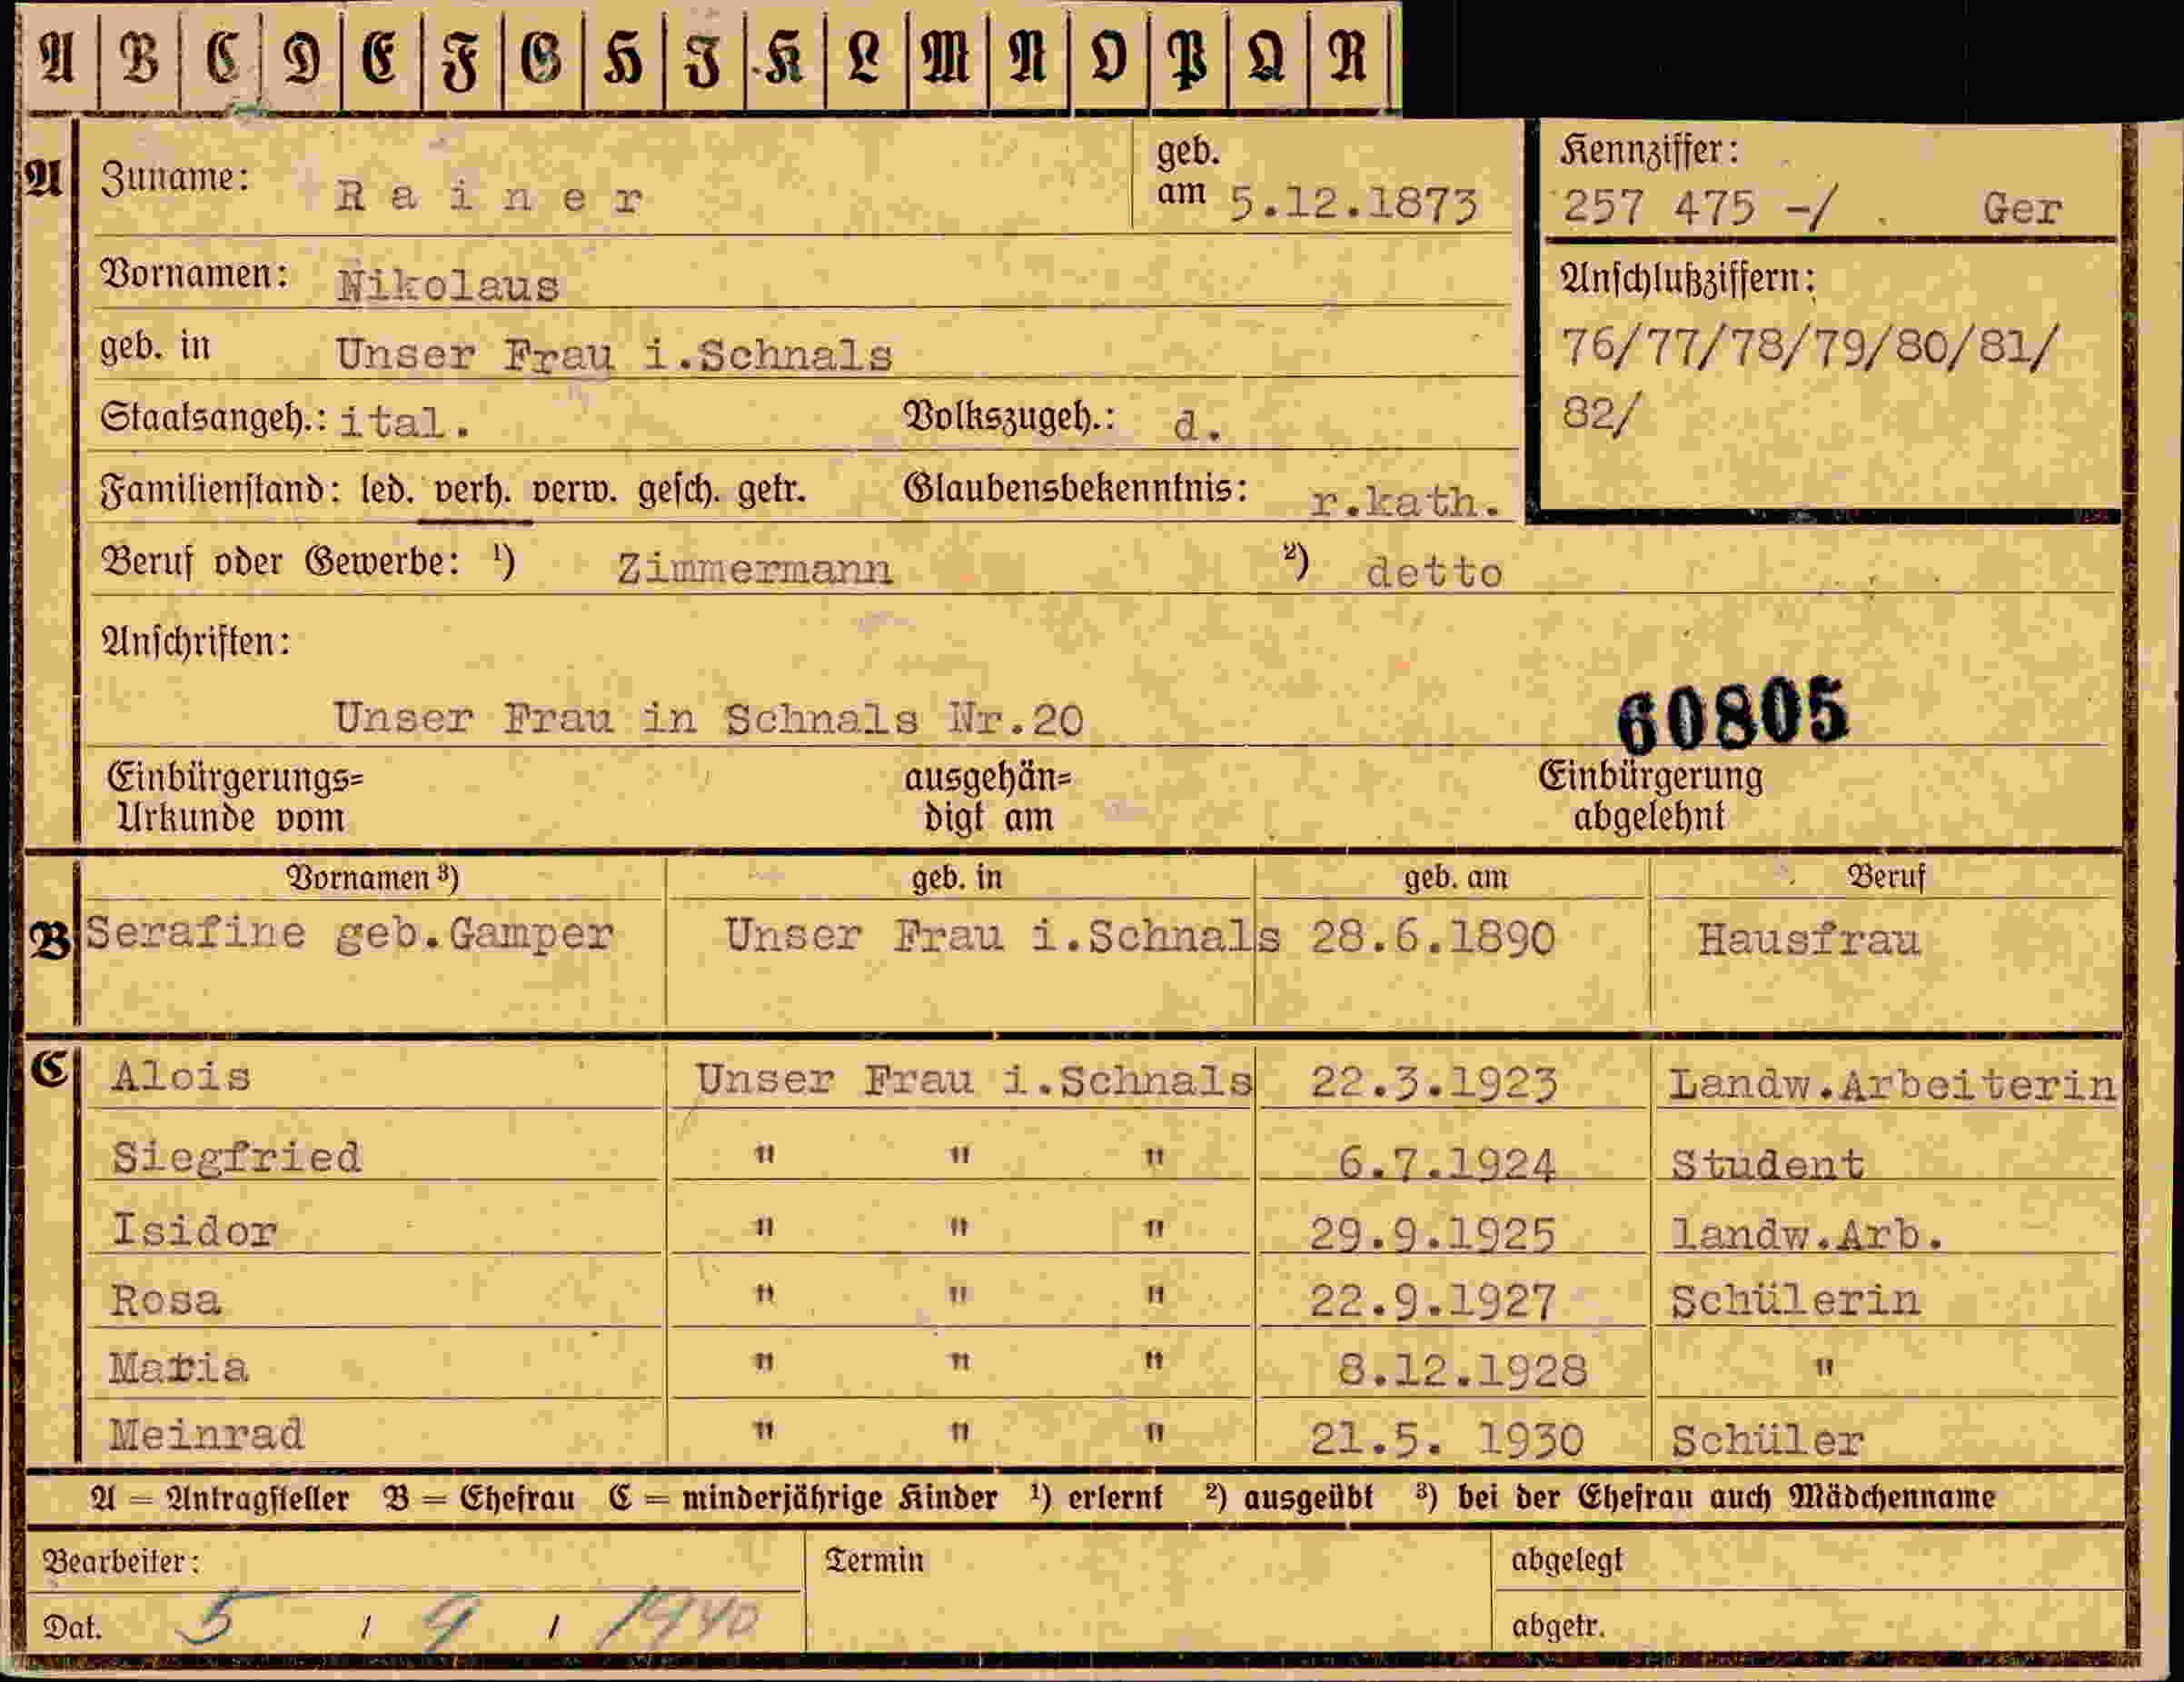 A B C D E F G H J K L M N O P Q R
A Zuname: Rainer geb. am 5.12.1873
Kennziffer:
257 475 -/ . Ger
Vornamen: Nikolaus
Anschlußziffern:
geb. in Unser Frau i.Schnals
76/77/78/79/80/81/
Staatsangeh.: ital. Volkszugeh.: d.
82/
Familienstand: led. verh. verw. gesch. getr. Glaubensbekenntnis: r.kath.
Beruf oder Gewerbe: ¹) Zimmermann ²) detto
Anschriften:
Unser Frau in Schnals Nr.20 60805
Einbürgerungs= ausgehän= Einbürgerung
Urkunde vom digt am abgelehnt
Vornamen ³) geb. in geb. am Beruf
B Serafine geb.Gamper Unser Frau i.Schnals 28.6.1890 Hausfrau
C Alois Unser Frau i.Schnals 22.3.1923 Landw.Arbeiterin
Siegfried " " " 6.7.1924 Student
Isidor " " " 29.9.1925 landw.Arb.
Rosa " " " 22.9.1927 Schülerin
Maria " " " 8.12.1928 "
Meinrad " " " 21.5. 1930 Schüler
A = Antragsteller B = Ehefrau C = minderjährige Kinder ¹) erlernt ²) ausgeübt ³) bei der Ehefrau auch Mädchenname
Bearbeiter: Termin abgelegt
Dat. 5 / 9 / 1940 abgetr.